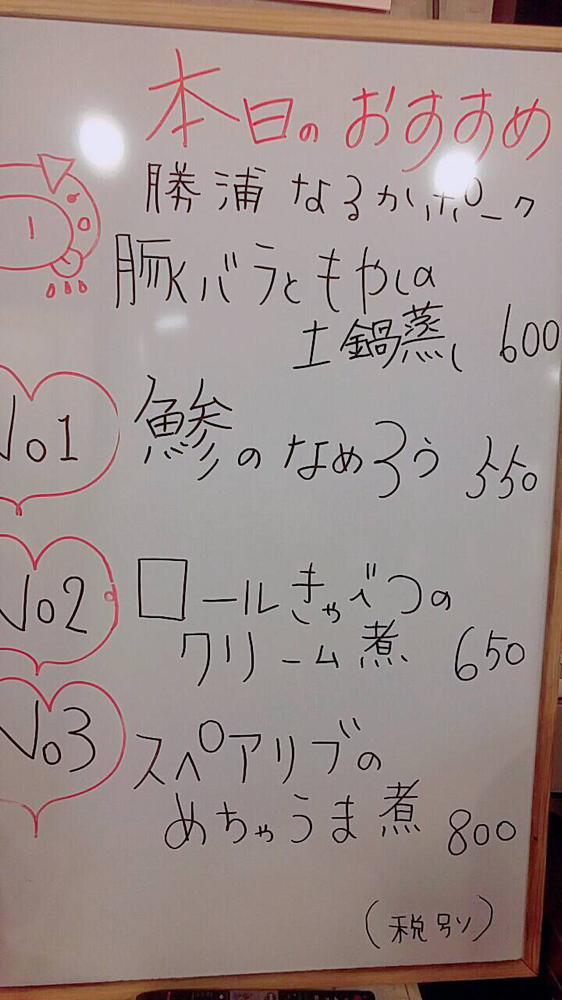 本日の おすすめ
勝浦 なるかポーク
豚バラともやしの
土鍋蒸し 600
No1 鯵のなめろう 550
No2 ロールきゃべつの
クリーム煮 650
No3 スペアリブの
めちゃうま煮 800
(税別)